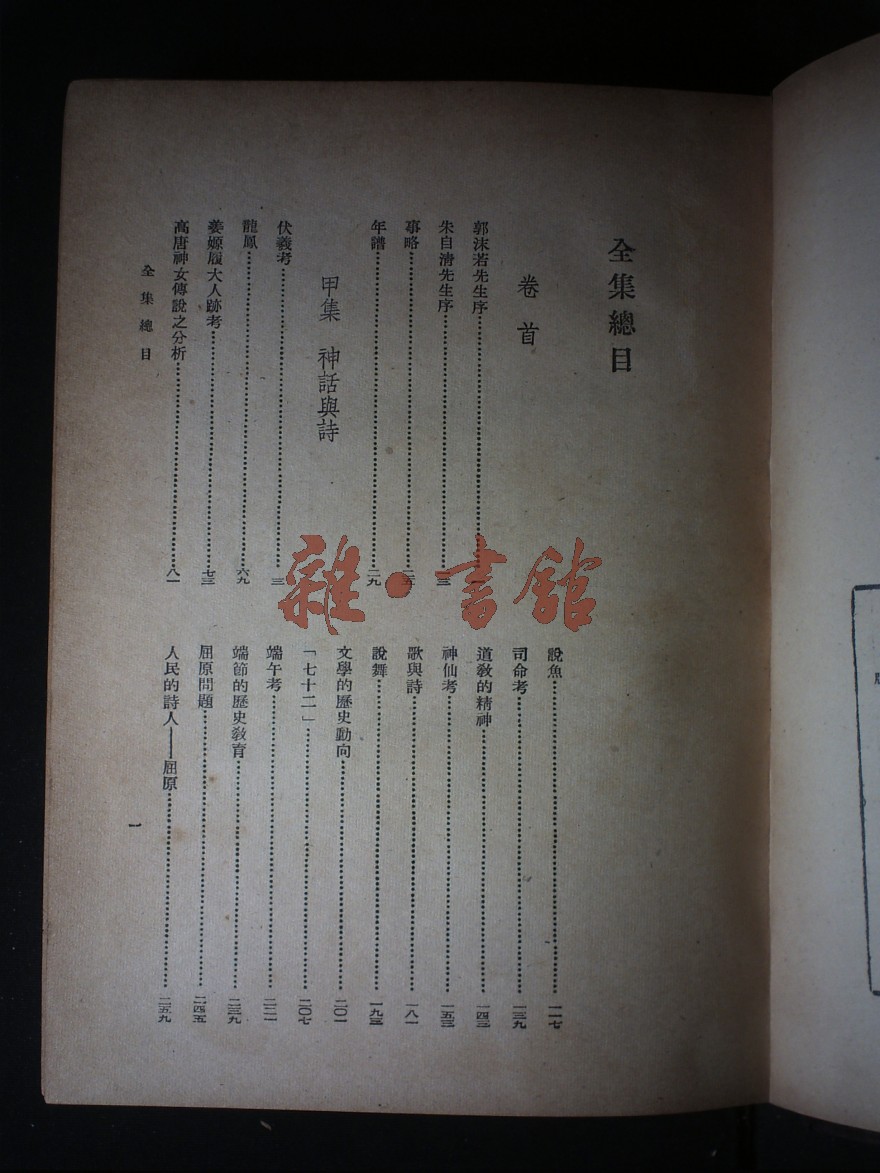 全集總目
卷首
郭沫若先生序
朱自清先生序……三
事略……二五
年譜……二九
甲集 神話與詩
伏羲考……三
龍鳳……六九
姜嫄履大人跡考……七三
高唐神女傳說之分析……八一
說魚……一一七
司命考……一三九
道教的精神……一四三
神仙考……一五三
歌與詩……一八一
說舞……一九三
文學的歷史動向……二〇一
「七十二」……二〇七
端午考……二二一
端節的歷史教育……二三九
屈原問題……二四五
人民的詩人——屈原……二五九
全集總目
一
雜·書館